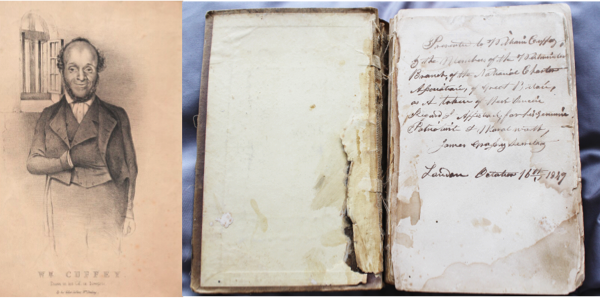 WM CUFFEY
Presented to William Cuffay
by the Members of the Westminster
Branch, of the National Charter
Association, of Great Britain,
as A token of their sincere
regard & Affection for his genuine
Patriotism & Moral worth
James Grassby Secretary
London October 16th 1849